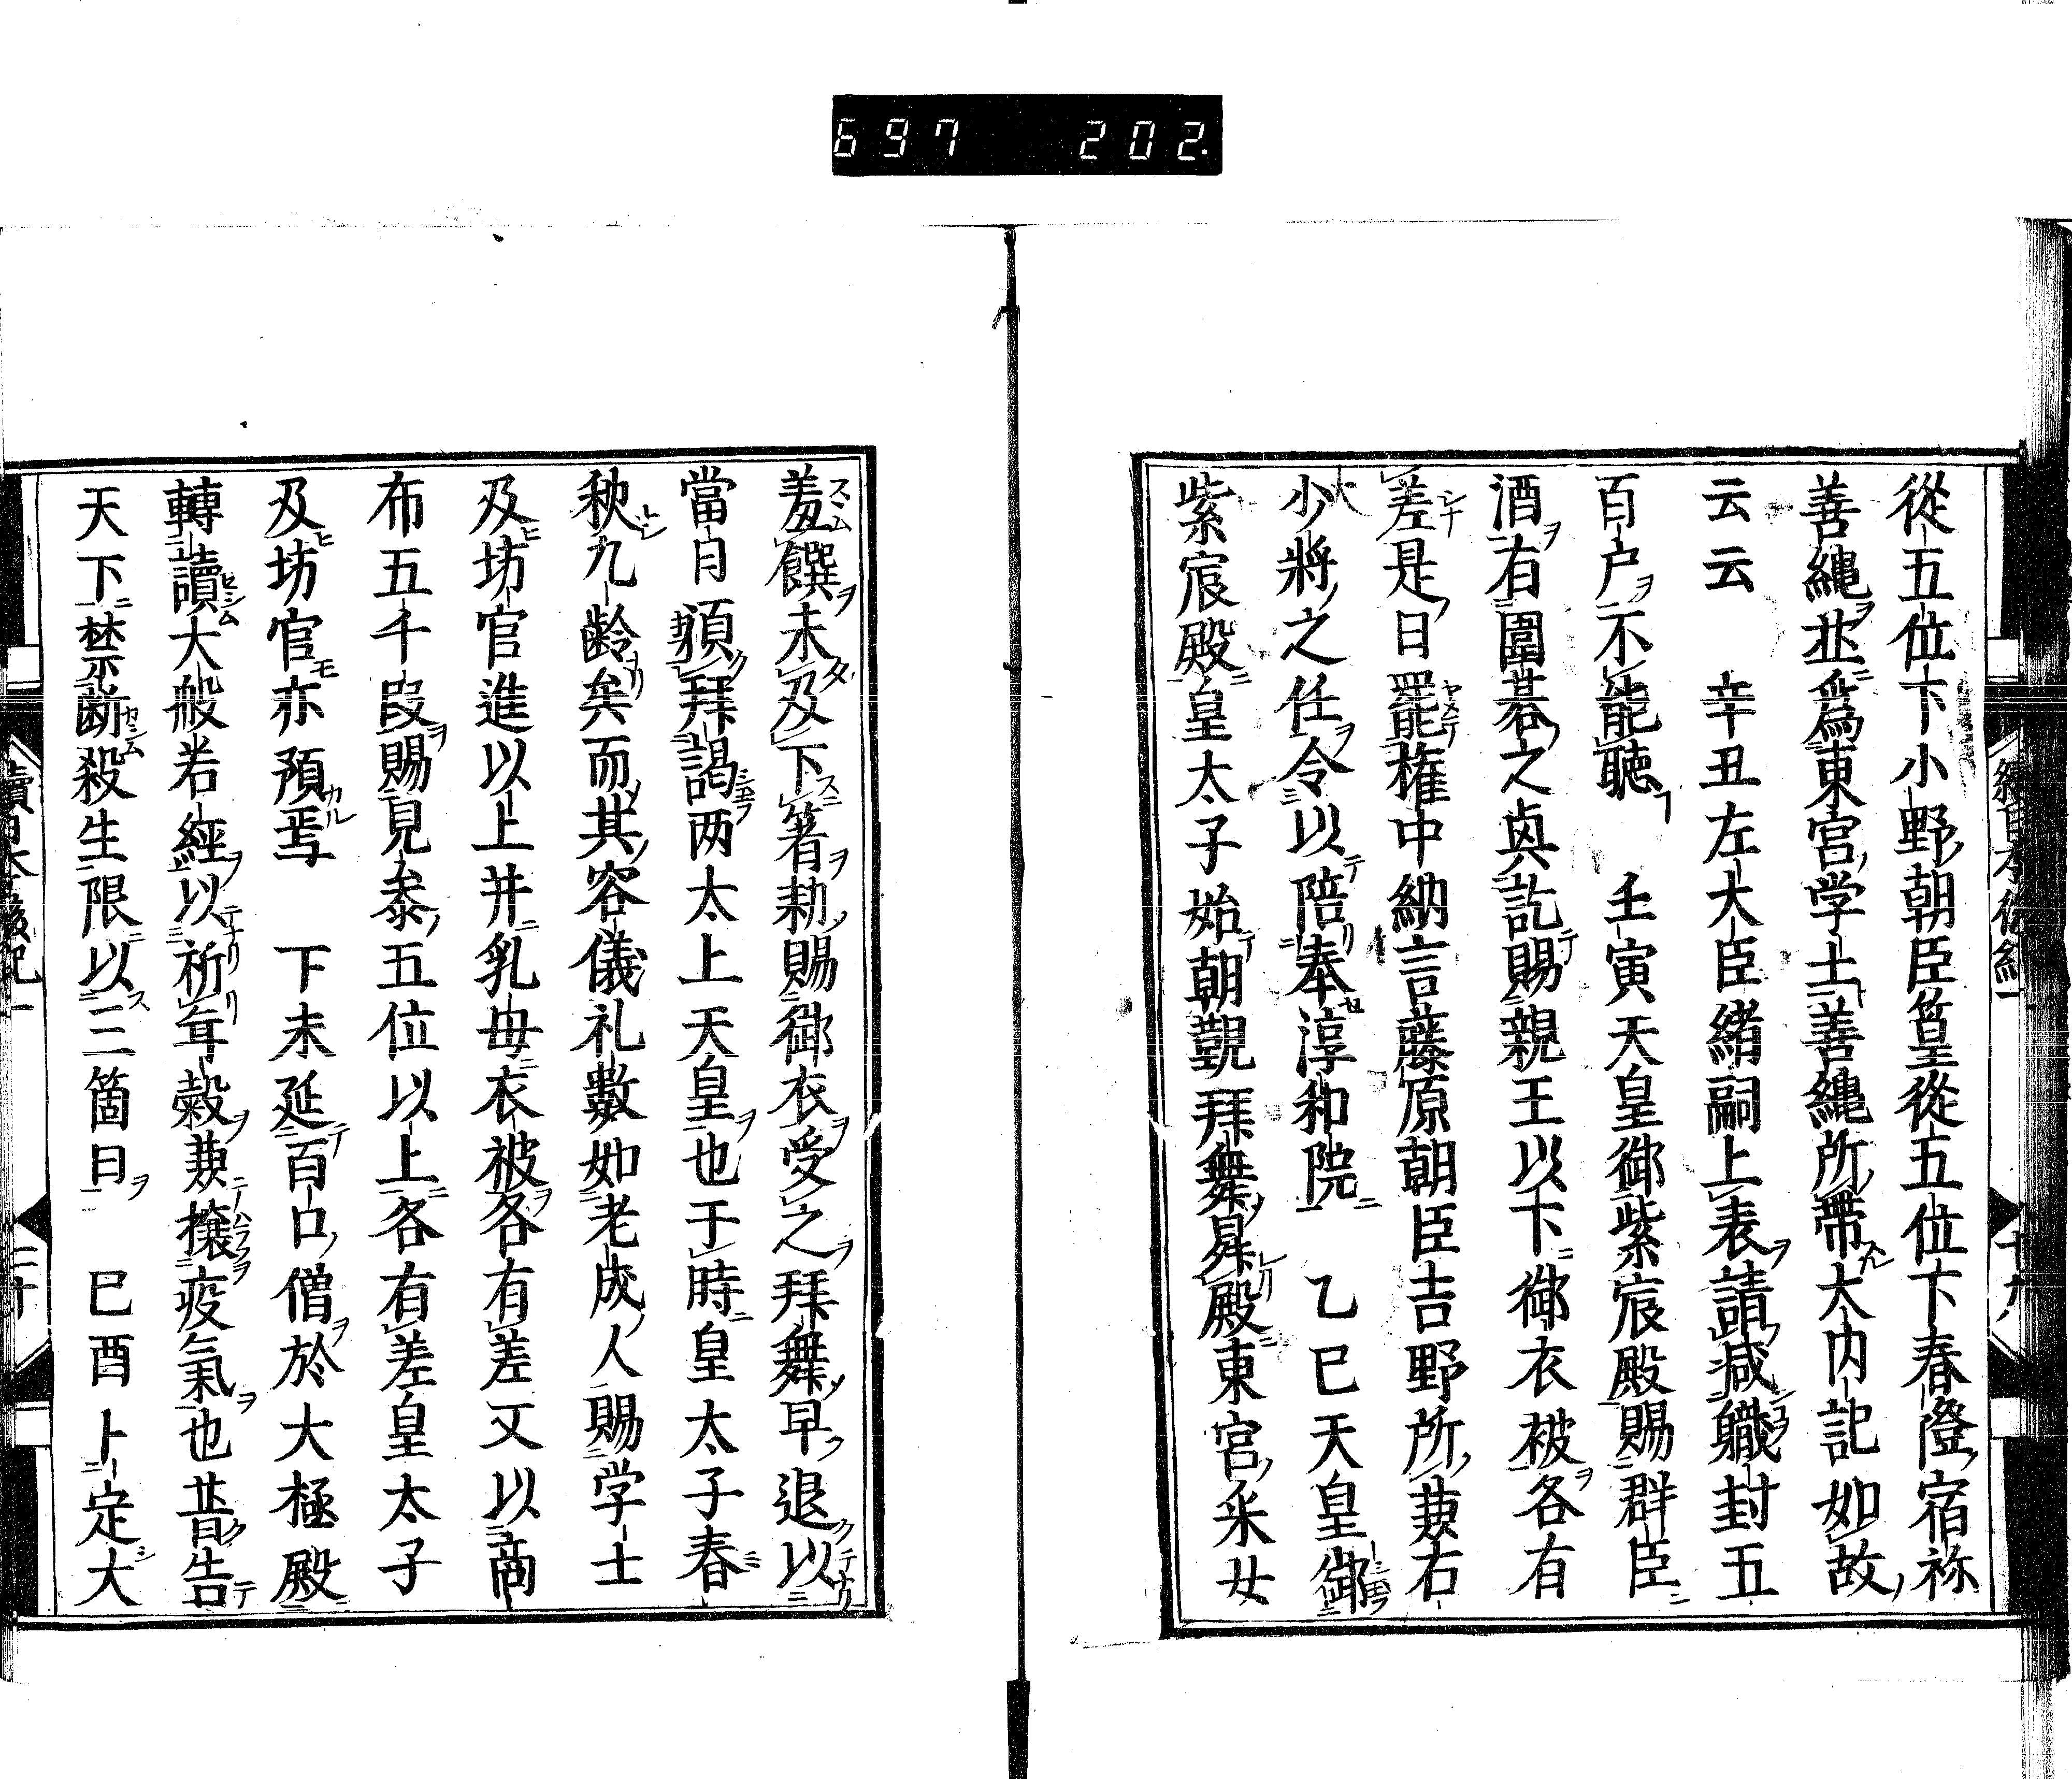 697 202.
從五位下小野朝臣篁從五位下春澄宿祢
善繩並爲東宮学士善繩所帶大内記如故
云云 辛丑左大臣緒嗣上表請减職封五
百户不能聴 壬寅天皇御紫宸殿賜群臣
酒有圍碁之奐訖賜親王以下御衣被各有
差是日罷権中納言藤原朝臣吉野所兼右
少將之任令以陪奉淳和院 乙巳天皇御
紫宸殿皇太子始朝覲拜舞昇殿東宮采女
羞饌未及下箸勅賜御衣受之拜舞早退以
當日須拜謁两太上天皇也于時皇太子春
秋九齢矣而其容儀礼數如老成人賜学士
及坊官進以上并乳母衣被各有差又以商
布五千段賜見参五位以上各有差皇太子
及坊官亦預焉 丁未延百口僧於大極殿
轉讀大般若經以祈年穀兼攘疫氣也普告
天下禁断殺生限以三箇日 己酉卜定大